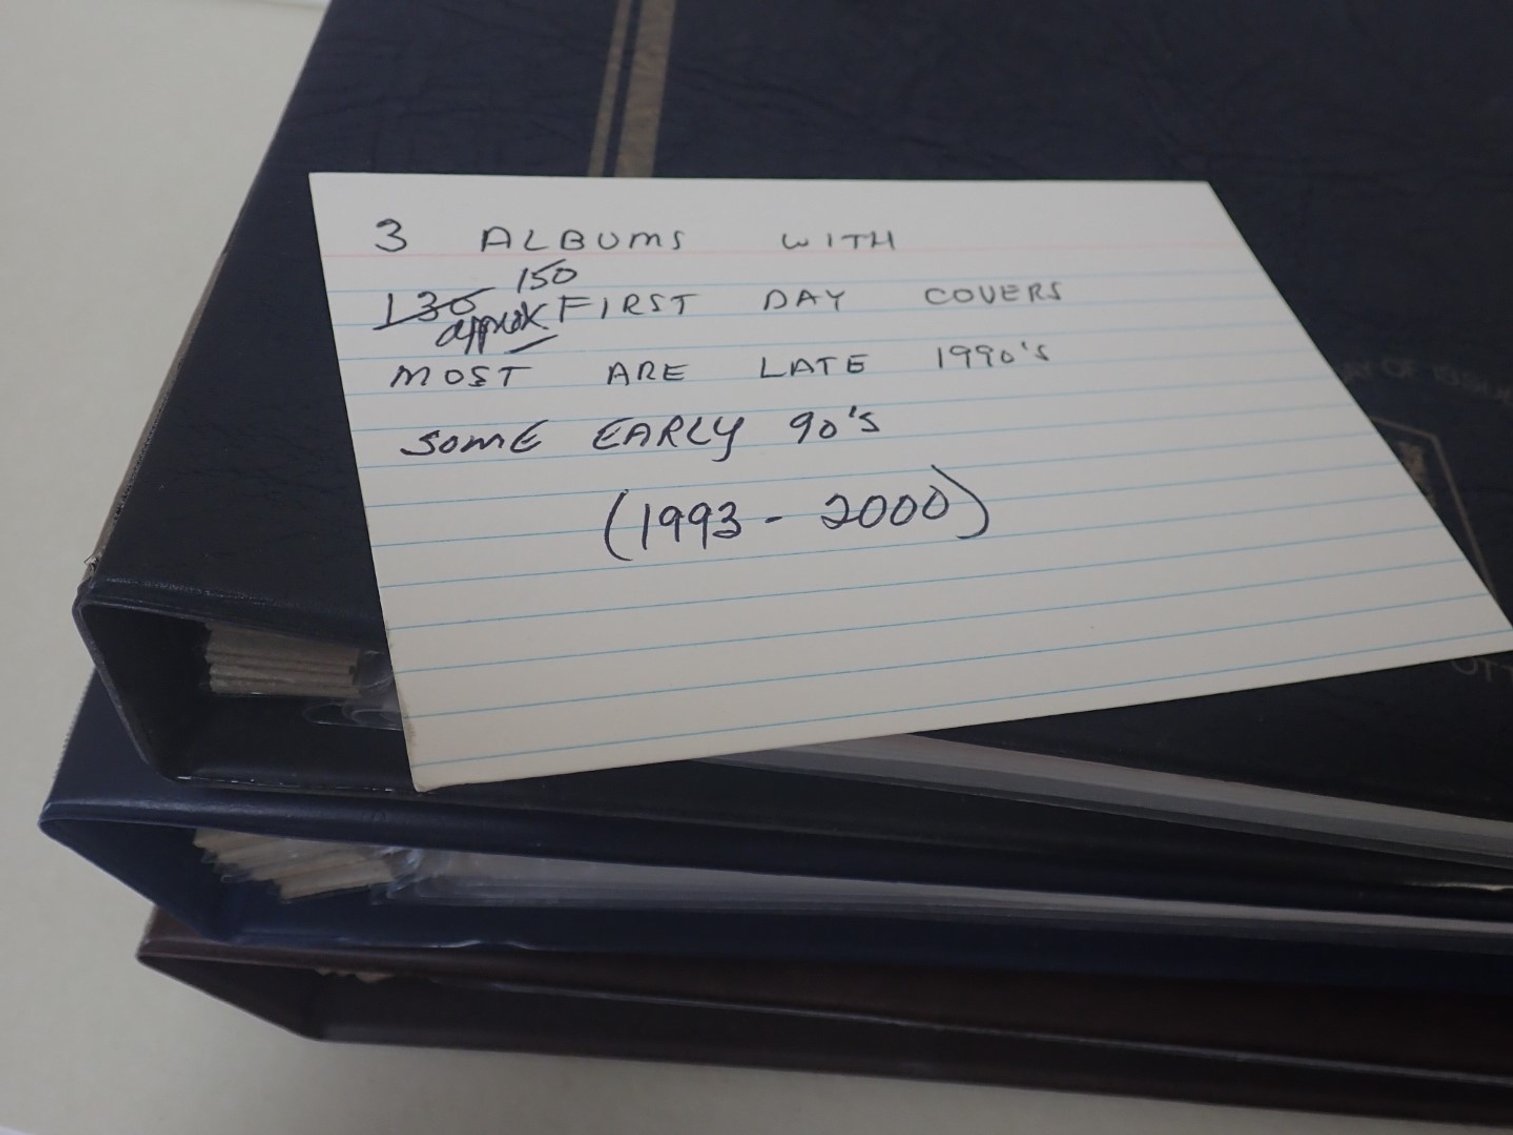 3 ALBUMS WITH
150
130 approx FIRST DAY COVERS
MOST ARE LATE 1990's
SOME EARLY 90's
(1993 - 2000)
DAY OF ISSUE
OTT